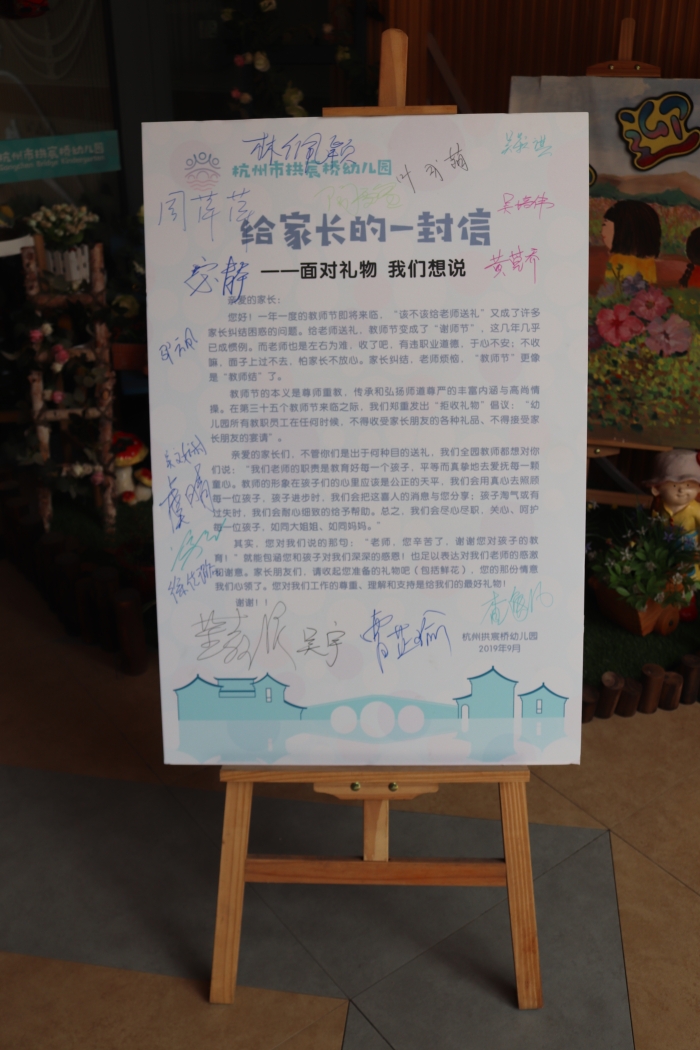 杭州市拱宸桥幼儿园
给家长的一封信
——面对礼物 我们想说
亲爱的家长：
您好！一年一度的教师节即将来临，“该不该给老师送礼”又成了许多
家长纠结困惑的问题。给老师送礼，教师节变成了“谢师节”，这几年几乎
已成惯例。而老师也是左右为难，收了吧，有违职业道德，于心不安；不收
嘛，面子上过不去，怕家长不放心。家长纠结，老师烦恼，“教师节”更像
是“教师结”了。
教师节的本义是尊师重教，传承和弘扬师道尊严的丰富内涵与高尚情
操。在第三十五个教师节来临之际，我们郑重发出“拒收礼物”倡议：“幼
儿园所有教职员工在任何时候，不得收受家长朋友的各种礼品、不得接受家
长朋友的宴请”。
亲爱的家长们，不管你们是出于何种目的送礼，我们全园教师都想对你
们说：“我们老师的职责是教育好每一个孩子，平等而真挚地去爱抚每一颗
童心。教师的形象在孩子们的心里应该是公正的天平，我们会用真心去照顾
每一位孩子，孩子进步时，我们会把这喜人的消息与您分享；孩子淘气或有
过失时，我们会耐心细致的给予帮助。总之，我们会尽心尽职，关心、呵护
每一位孩子，如同大姐姐，如同妈妈。”
其实，您对我们说的那句：“老师，您辛苦了，谢谢您对孩子的教
育！”就能包涵您和孩子对我们深深的感恩！也足以表达对我们老师的感激
和谢意。家长朋友们，请收起您准备的礼物吧（包括鲜花），您的那份情意
我们心领了。您对我们工作的尊重、理解和支持是给我们的最好礼物！
谢谢！！
杭州拱宸桥幼儿园
2019年9月
林佩颖
叶秀萌
周萍萍
宋静
黄楚乔
吴宇
曹芷瑜
杭州市拱宸桥幼儿园
迎